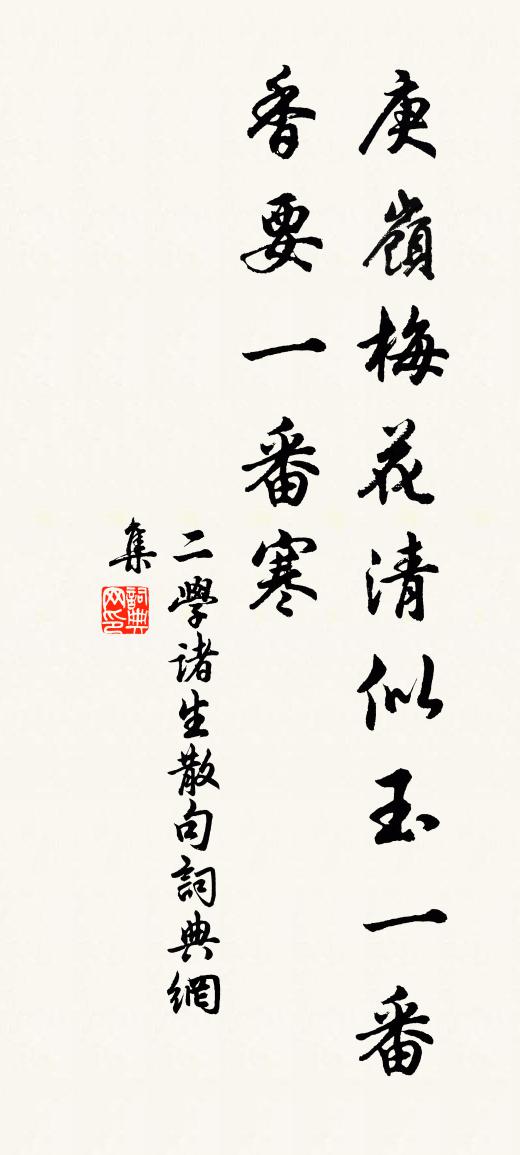 庾嶺梅花清似玉一番
香要一番寒
二學诸生散句詞典網
集
詞典
网印